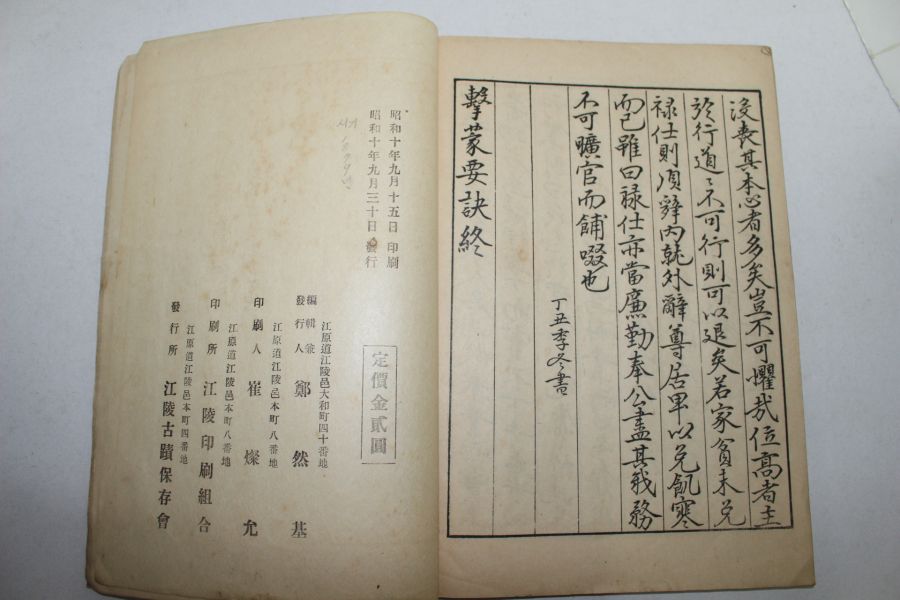 沒喪其本心者多矣豈不可懼哉位高者主
於行道〻不可行則可以退矣若家貧未免
祿仕則須辭內就外辭尊居卑以免飢寒
而已雖曰祿仕亦當廉勤奉公盡其職務
不可曠官而餔啜也
丁丑季冬書
擊蒙要訣終
昭和十年九月十五日 印刷
昭和十年九月三十日 發行
定價金貳圓
江原道江陵邑大和町四十番地
編輯兼發行人 鄭然基
江原道江陵邑本町八番地
印刷人 崔燦允
江原道江陵邑本町八番地
印刷所 江陵印刷組合
江原道江陵邑本町四番地
發行所 江陵古蹟保存會